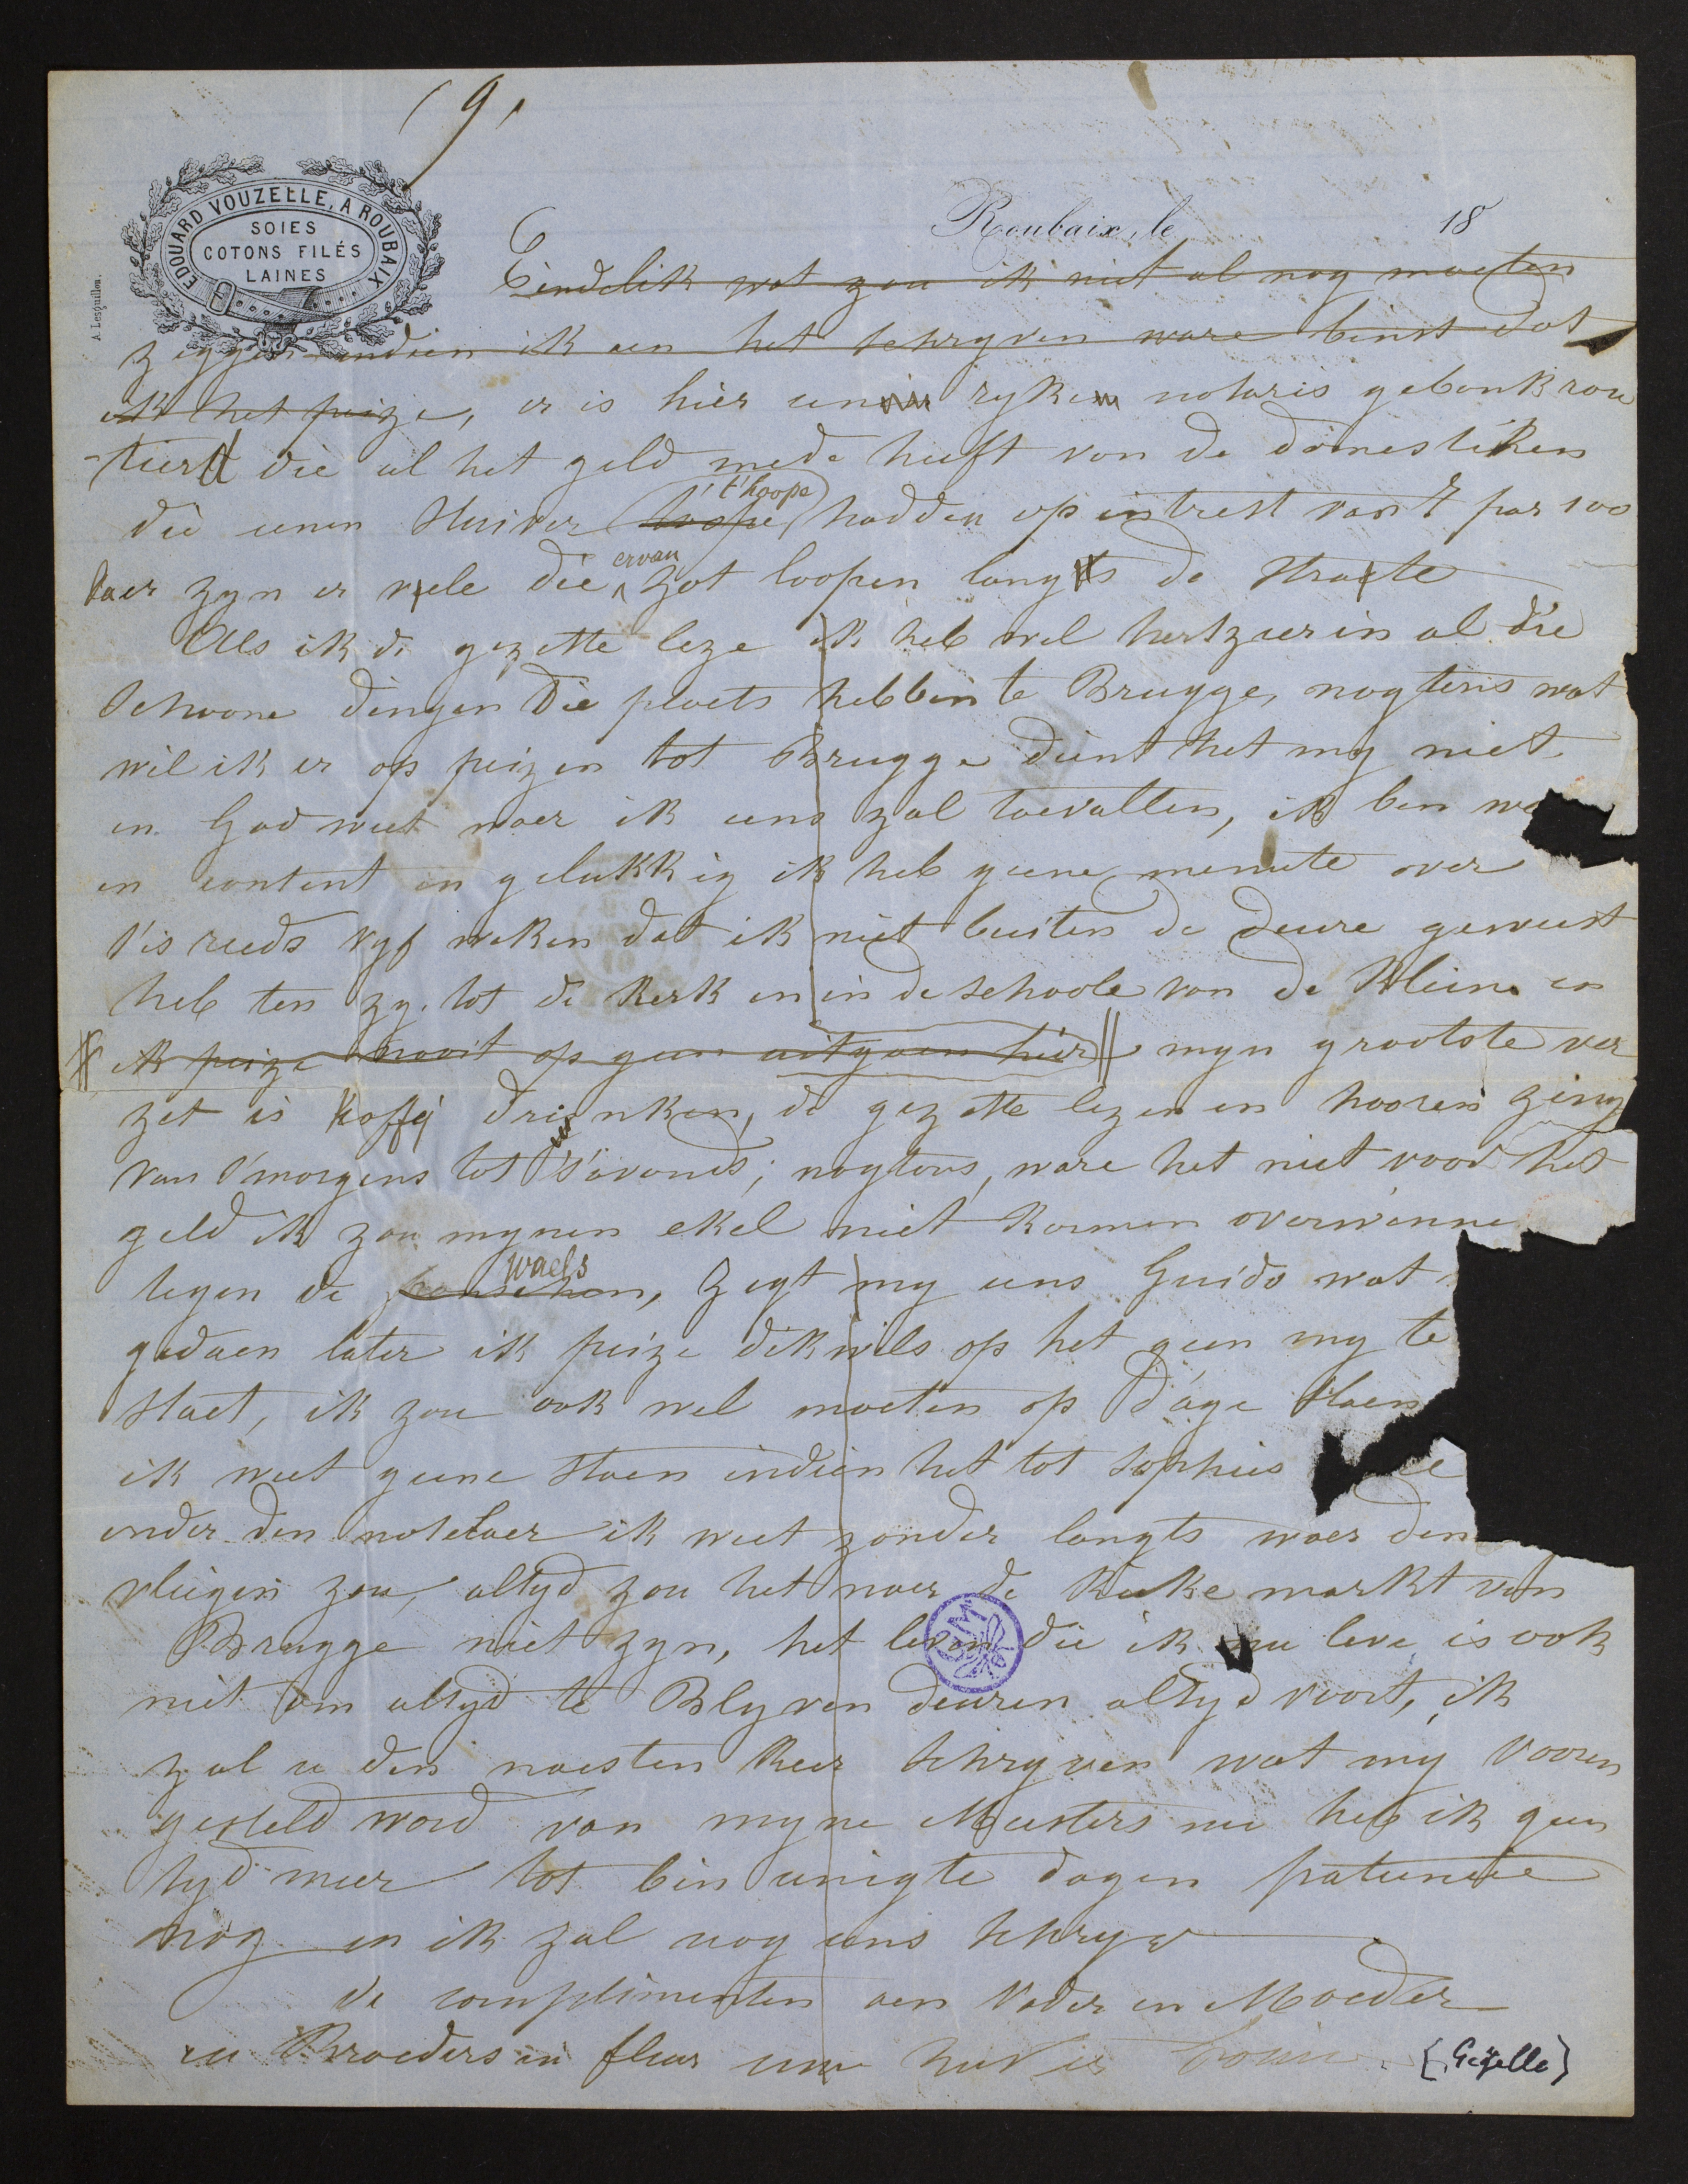 9
EDOUARD VOUZELLE, A ROUBAIX
SOIES
COTONS FILÉS
LAINES
A. Lesquillon.
Roubaix, le 18
Eindelik wat zou ik niet al nog moeten
zeggen indien ik aen het schryven ware binst dat
ik het peize, er is hier eenen ryken notaris gebankrou
tierd die al het geld mede heeft van de domestiken
die eenen stuiver t'hoope hadden op intrest van 7 par 100
daer zyn er vele die ervan zot loopen langs de strate
Als ik de gezette leze ik heb wel hertzeer in al die
schoone dingen die plaets hebben te Brugge, nogtens wat
wil ik er op peizen tot Brugge dient het my niet
en God weet waer ik eens zal toevallen, ik ben we
en content en gelukkig ik heb geene menute over
t'is reeds vyf weken dat ik niet buiten de deure geweest
heb ten zy tot de kerk en in de schoole van de kleine en
ik peize nooit op geen uitgaen hier myn grootste ver
zet is koffy drinken, de gezette lezen en hooren zing
van s'morgens tot s'avonds; nogtens, ware het niet voor het
geld ik zou mynen ekel niet konnen overwinne
tegen de franschen, waels zegt my eens Guido wat
gedaen later ik peize dikwils op het geen my te
staet, ik zou ook wel moeten op dage staen
ik weet geene staen indien het tot sophies
onder den notelaer ik weet zonder langts waer den
vliegen zou, altyd zou het naer de kieke markt van
Brugge niet zyn, het leven die ik nu leve is ook
niet om altyd te Blyven deuren altyd voort, ik
zal u den naesten keer schryven wat my vooren
gesteld word van myne Meesters nu heb ik geen
tyd meer tot bin eenigte dagen patientie
nog en ik zal nog eens schryv
de complimenten aen Vader en Moeder
en Broeders en
[Gezelle]